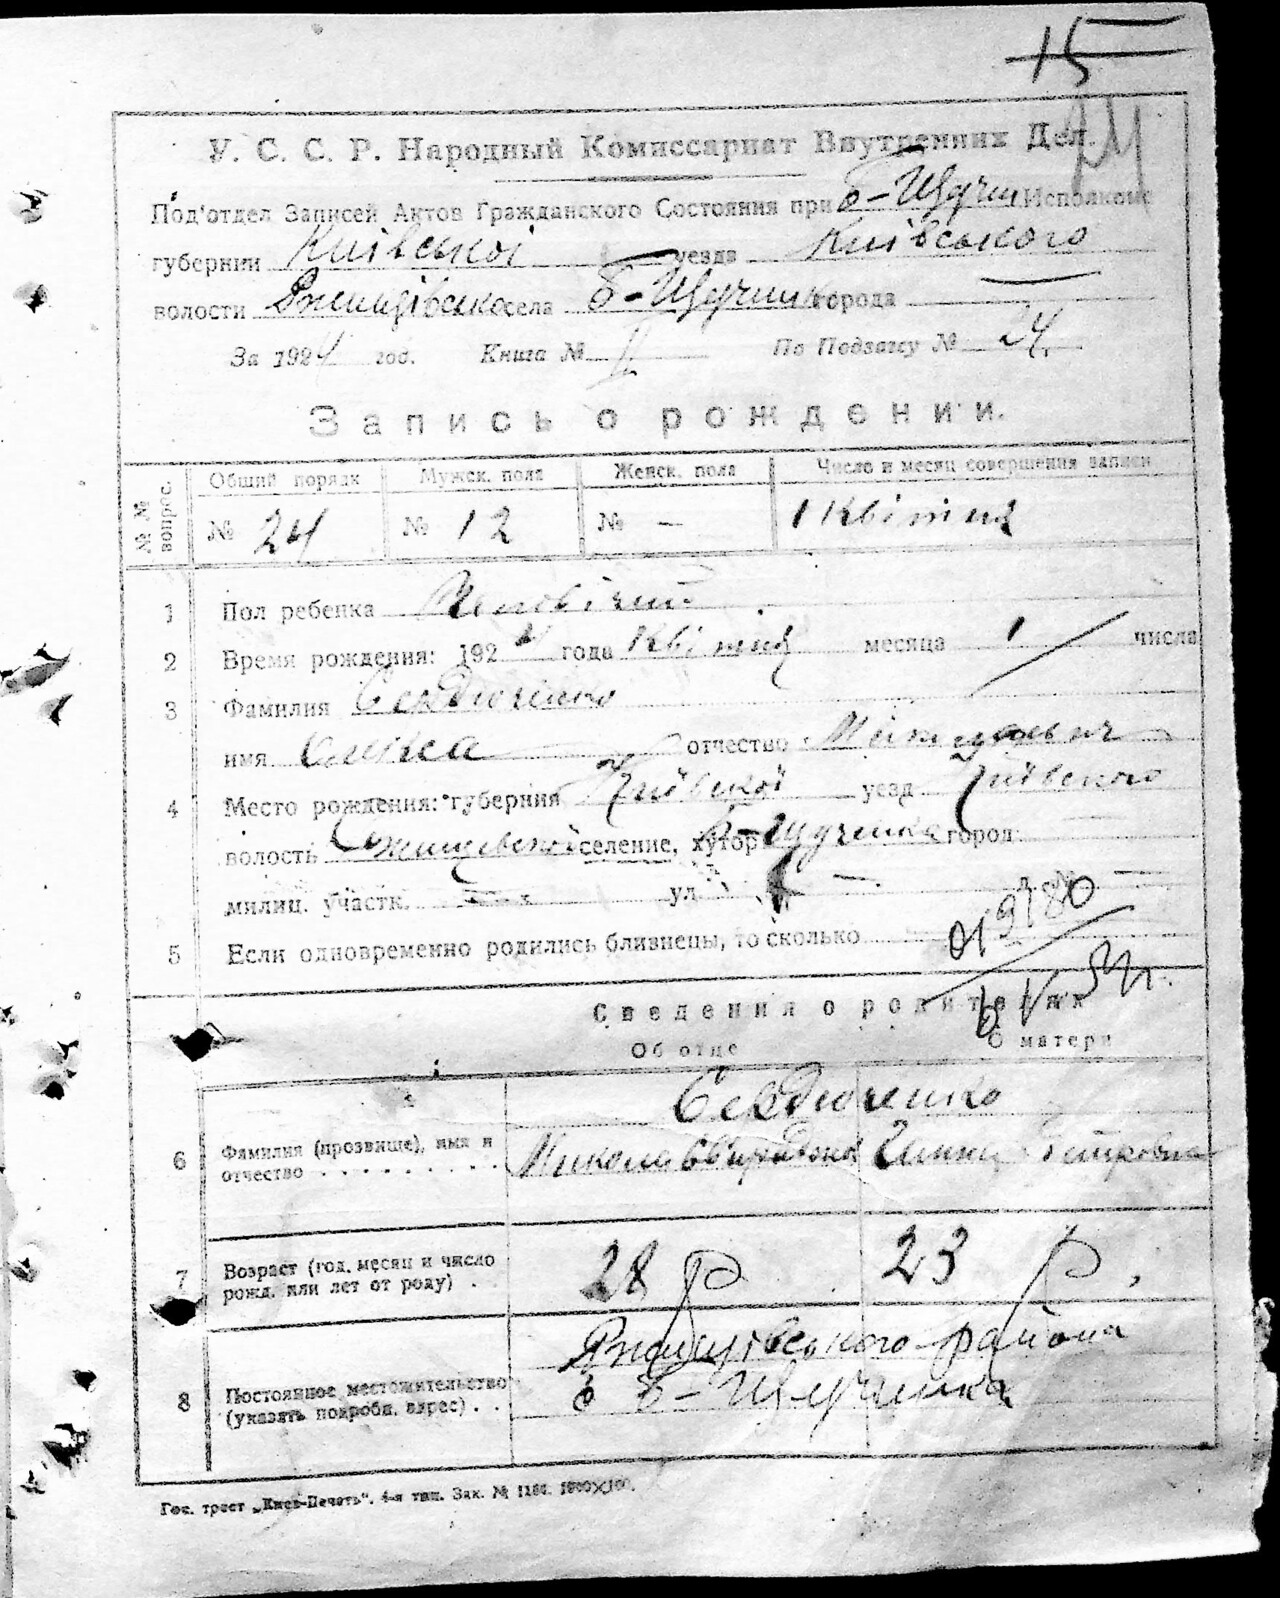 15
У. С. С. Р. Народный Комиссариат Внутренних Дел.
Под'отдел Записей Актов Гражданского Состояния при б-Щучин Исполкоме
губернии Київської уезда Київського
волости Ржищівсько села б-Щучинка города —
За 1924 год. Книга № I По Подзагсу № 24
Запись о рождении.
№ № вопрос. Общий порядк Мужск. пола Женск. пола Число и месяц совершения записи
№ 24 № 12 № — 1 Квітня
1 Пол ребенка Чоловічий
2 Время рождения: 1924 года Квітня месяца 1 числа
3 Фамилия Сердюченко
имя Олекса отчество Миколаевич
4 Место рождения: губерния Київської уезд Київського
волость Ржищевской селение, хутор б-Щученка город
милиц. участк. ул. —
5 Если одновременно родились близнецы, то сколько
Сведения о родителях
Об отце О матери
Сердюченко
6 Фамилия (прозвище), имя и Микола Петровна
отчество
7 Возраст (год, месяц и число 28 р 23 р.
рожд. или лет от роду)
Ржищівського района
8 Постоянное местожительство б-Щучинка
(указать подробн. адрес)
Гос. трест „Киев-Печать". 4-я тип. Зак. №